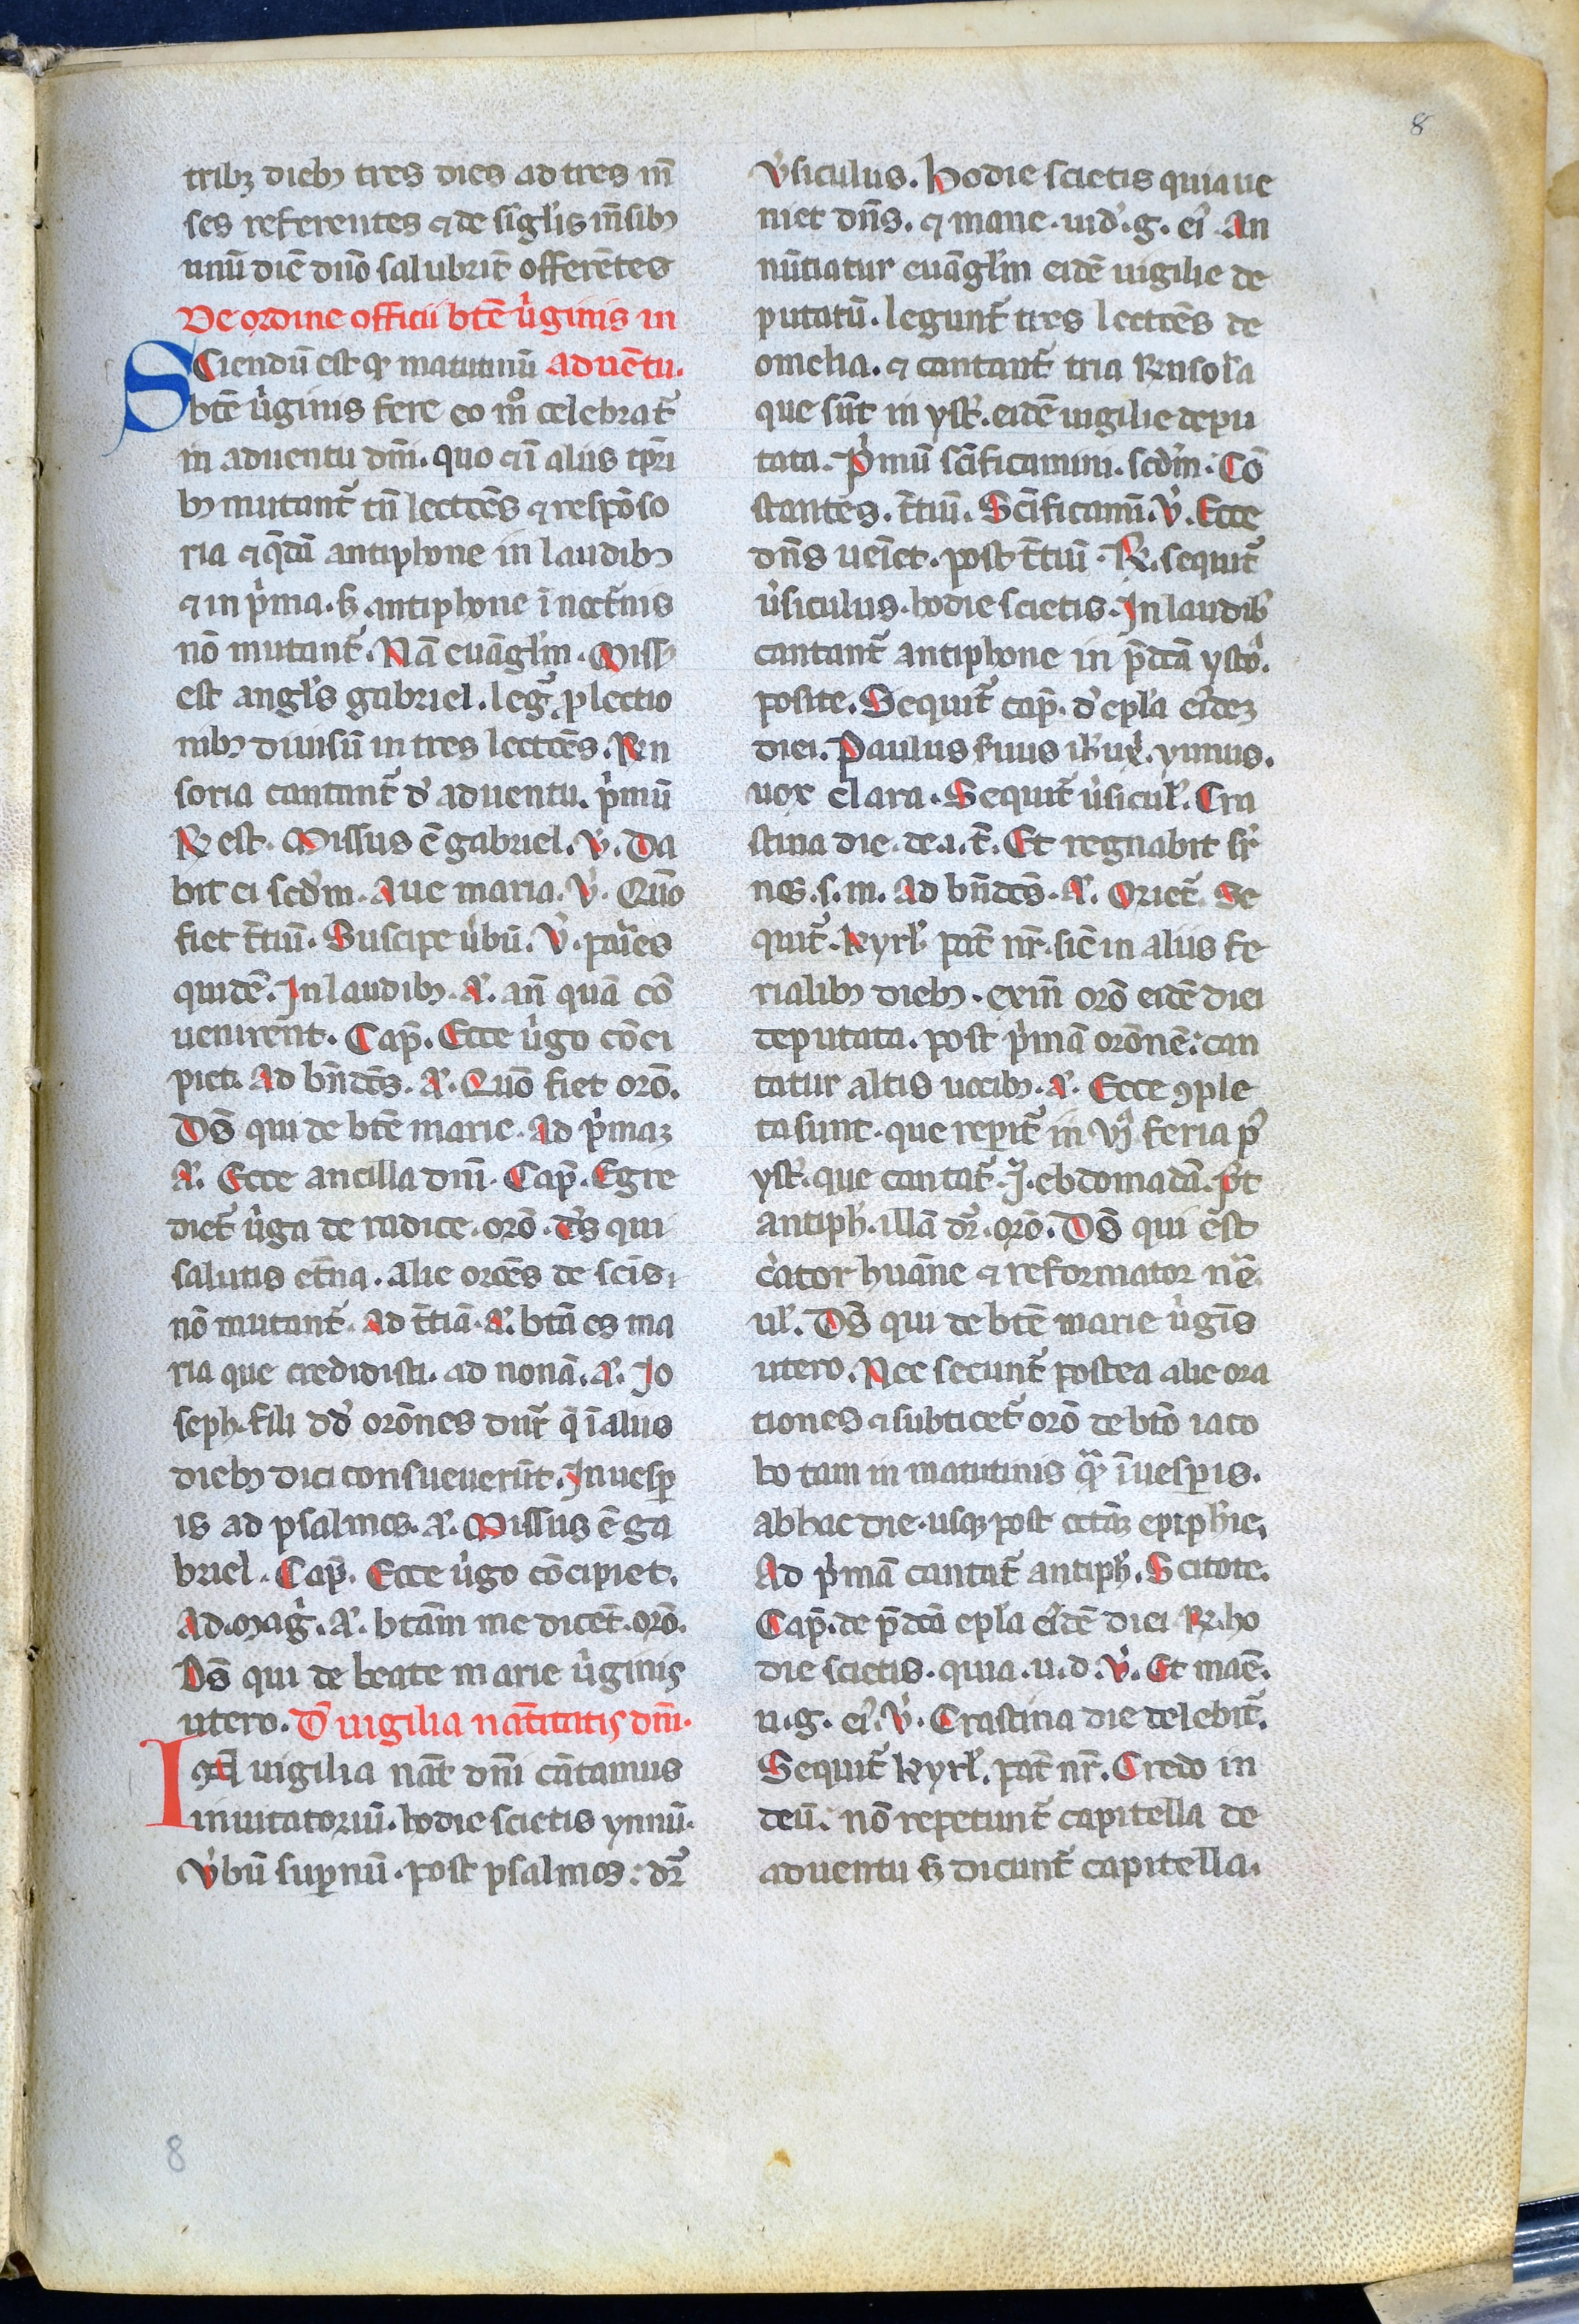 8
tribꝫ diebꝰ tres dies ad tres m̄
ses referentes ⁊ de sīgl'is m̄sibꝰ
unū diē dnō salubrit̄ offerētes
De ordine officii btē v̓ginis in
SCiendū est qꝫ matutinū aduētu.
btē v̓ginis fere eo mͦ celebrat᷑
in aduentu dnī. quo ⁊ ī aliis tp̄ri
bꝰ mutant᷑ tn̄ lectcēs ⁊ respōso
ria ⁊ q̄dā antiphone in laudibꝰ
⁊ in p̓ma. sꝫ antiphone ī noct̄nis
nō mutant᷑. Nā euāgl'm. Miss
est angl's gabriel. leg᷑ ꝓ lectio
nibꝰ diuisū in tres lectcēs. Rn
soria cantant᷑ d' aduentu. p̓mū
℞ est. Missus ē gabriel. v̓. Da
bit ei scd'm. Aue maria. v̓. Quō
fiet t̄tiū. Suscipe v̓bū. v̓. paries
quidē. In laudibꝰ. A'. an̄ quā cō
uenirent. Cap̄. Ecce v̓go cōci
piet. Ad bn̄dcēs. A'. Quō fiet orō.
Ds̄ qui de btē marie. Ad p̓maꝫ
A'. Ecce ancilla dnī. Cap̄. Egre
diet᷑ v̓ga de radice. orō. ds̄ qui
salutis et̄na. alie orcēs de scīs,
nō mutant᷑. Ad t̄tiā. A'. btā es ma
ria que credidisti. ad nonā. A'. Io
seph. fili dd' orōnes dnr̄ q̄ ī aliis
diebꝰ dici consueuerūt. In uesꝑ
is ad psalmos. A'. Missus ē ga
briel. Cap̄. Ecce v̓go cōcipiet.
Ad. mag̓. A'. btām me dicēt. orō.
Ds̄ qui de beate marie v̓ginis
utero. D' uigilia nat̄itatis dnī.
In uigilia nat̄ dnī cātamus
inuitatoriū. hodie scietis ynnū.
v̓bū suꝑnū. post psalmos: dr̄
v̓siculus. hodie scietis quia ue
niet dn̄s. ⁊ mane. uid'. g. ei'. An
nūtiatur euāgl'm eidē uigilie de
putatū. legunt᷑ tres lectcēs de
omelia. ⁊ cantant᷑ tria Rnsoria
que sūt in yst'. eidē uigilie depu
tata. P̓mū scīficamini. scd'm. Cō
stantes. t̄tiū. Scīficamī. v̓. Ecce
dn̄s ueīet. post t̄tiū. ℞. sequit᷑
v̓siculus. hodie scietis. In laudib'
cantant᷑ antiphone in p̄dcā ysto'.
posite. Sequit᷑ cap̄. d' epl'a eideꝫ
diei. Paulus seruus ih'u x'. ymnus.
uox clara. Sequit᷑ v̓sicul'. Cra
stina die. de. i. t̄. Et regnabit sr̄
nos. s. m. Ad bn̄dcēs. A'. Oriet᷑. Se
quit᷑. kyrl' pat̄ nr̄. sic̄ in aliis fe
rialibꝰ diebꝰ. exin̄ orō eidē diei
deputata. post p̓mā orōnē: can
tatur altis uocibꝰ. A'. Ecce ꝯple
ta sunt. que reperit᷑ in vjͣ feria p'
yst'. que cantat᷑. j. ebdomadā. p̄t
antiph'. illā dr̄. orō. Ds̄ qui est
c̓ator huāne ⁊ reformator nr̄e
ul'. Ds̄ qui de btē marie v̓gīs
utero. Nec secunt᷑ postea alie ora
tiones ⁊ subticet᷑ orō de btō iaco
bo tam in matutinis qͣꝫ ī uesꝑis.
ab hac die. usqꝫ post octāꝫ epiph'ie,
Ad p̓mā cantat᷑ antiph'. Scitote.
Cap̄. de p̄dcā epl'a eidē diei ℞. ho
die scietis. quia. u. d. v̓. Et maē.
u. g. ei'. v̓. Crastina die delebit᷑.
Sequit᷑ kyrl'. pat̄ nr̄. Credo in
deū. nō repetunt᷑ capitella de
aduentu sꝫ dicunt᷑ capitella.
8